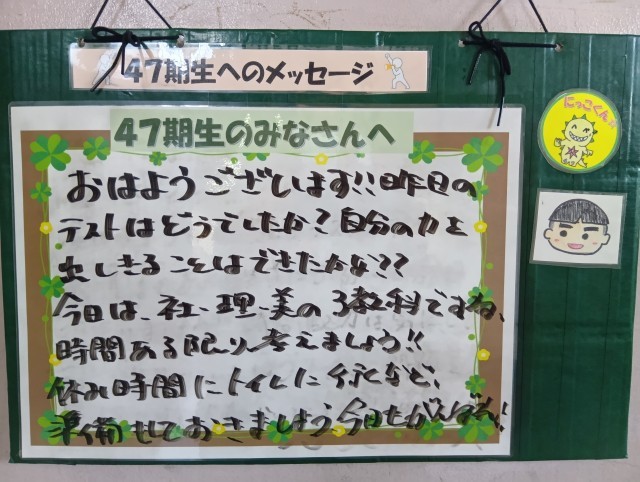 47期生へのメッセージ
にっこくん
47期生のみなさんへ
おはようございます!!昨日の
テストはどうでしたか?自分の力を
出しきることはできたかな??
今日は、社・理・美の3教科ですね、
時間ある限り考えましょう!!
休み時間にトイレに行くなど、
準備もしておきましょう 今日もがんばろう!!